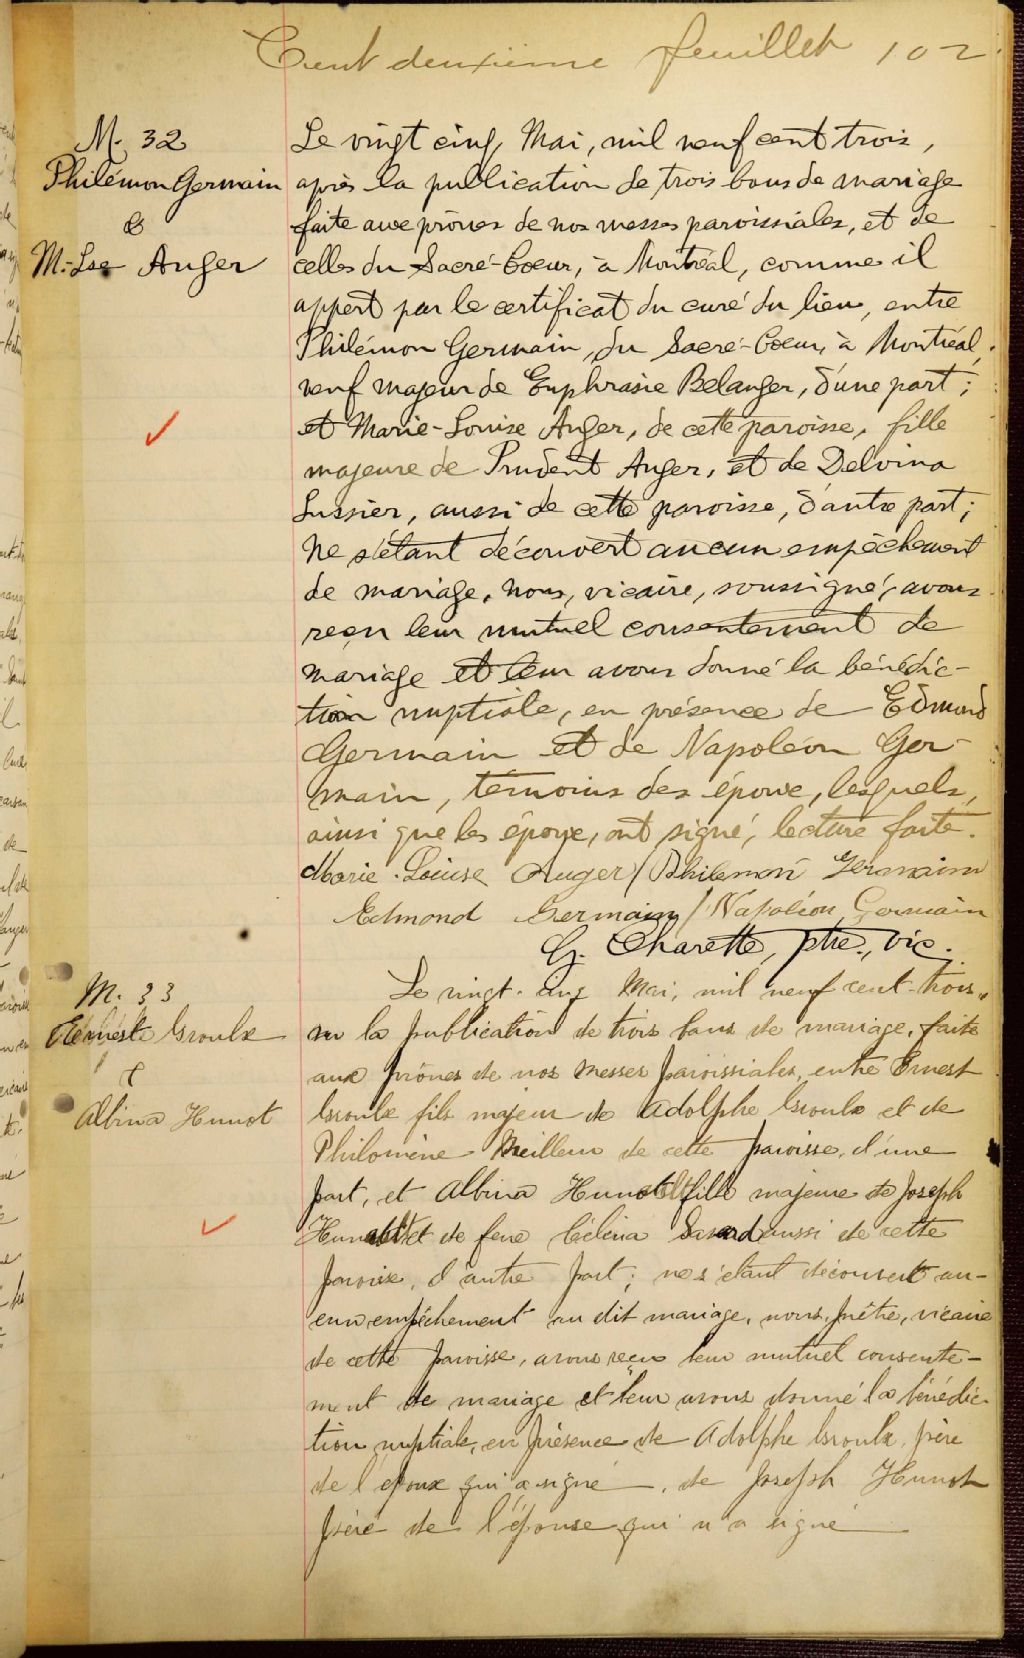 Cent deuxième feuillet 102
M. 32
Philémon Germain
&
M.-Lse Auger
Le vingt cinq, Mai, mil neuf cent trois,
après la publication de trois bans de mariage
faite aux prônes de nos messes paroissiales, et de
celles du Sacré-Coeur, à Montréal, comme il
appert par le certificat du curé du lieu, entre
Philémon Germain, du Sacré-Coeur, à Montréal,
veuf majeur de Euphrasie Belanger, d'une part;
et Marie-Louise Auger, de cette paroisse, fille
majeure de Prudent Auger, et de Delvina
Lussier, aussi de cette paroisse, d'autre part;
ne s'étant découvert aucun empêchement
de mariage, nous, vicaire, soussigné, avons
reçu leur mutuel consentement de
mariage et leur avons donné la bénédic-
tion nuptiale, en présence de Edmond
Germain et de Napoléon Ger-
main, témoins des époux, lesquels,
ainsi que les époux, ont signé, lecture faite.
Marie-Louise Auger / Philemon Germain
Edmond Germain / Napoléon Germain
G. Charette, ptre., vic.
M. 33
Ernest Groulx
&
Albina Hunot
Le vingt-cinq Mai, mil neuf cent-trois,
vu la publication de trois bans de mariage, faite
aux prônes de nos messes paroissiales, entre Ernest
Groulx fils majeur de Adolphe Groulx et de
Philomène Meilleur de cette paroisse, d'une
part, et Albina fille majeure de Joseph
et de feue Célina aussi de cette
paroisse, d'autre part; ne s'étant découvert au-
cun empêchement au dit mariage, nous, prêtre, vicaire
de cette paroisse, avons reçu leur mutuel consente-
ment de mariage et leur avons donné la bénédic-
tion nuptiale, en présence de Adolphe Groulx, père
de l'époux qui a signé, de Joseph Hunot
père de l'épouse qui n'a signé